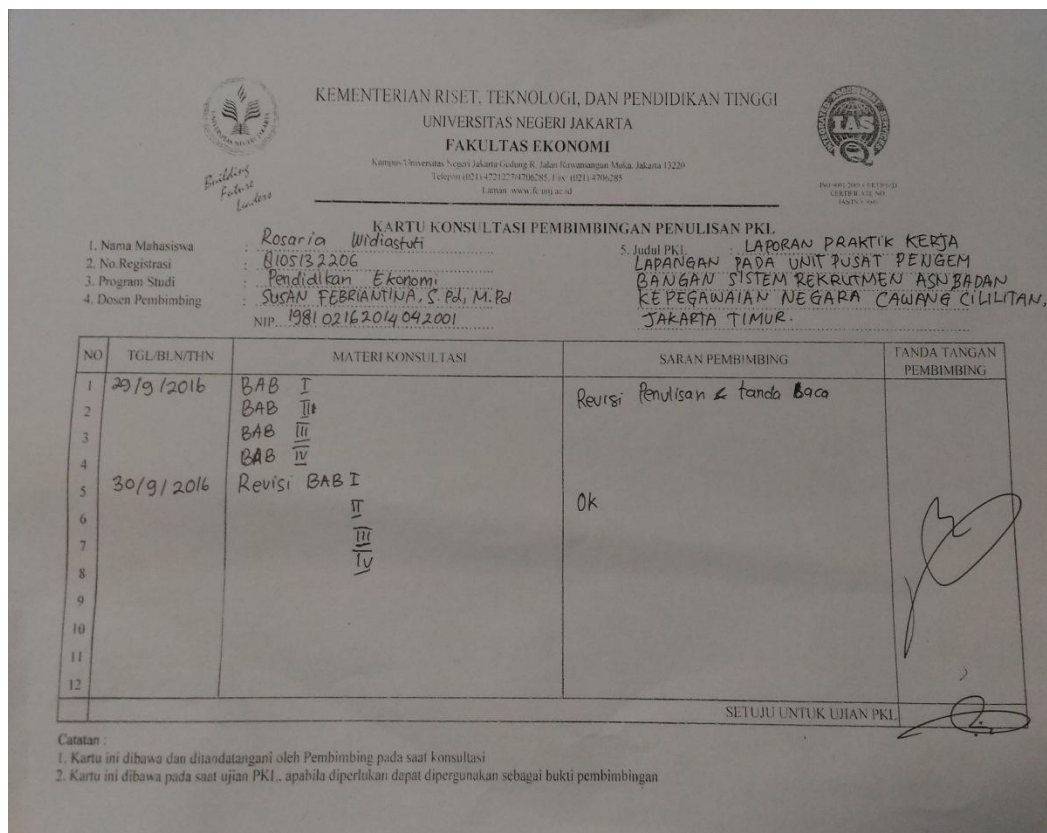 KEMENTERIAN RISET, TEKNOLOGI, DAN PENDIDIKAN TINGGI
UNIVERSITAS NEGERI JAKARTA
FAKULTAS EKONOMI
Kampus Universitas Negeri Jakarta Gedung R, Jalan Rawamangun Muka, Jakarta 13220
Telepon (021) 4721227/4706285, Fax: (021) 4706285
Laman: www.fe.unj.ac.id
Building
Future
Leaders
IAS
KARTU KONSULTASI PEMBIMBINGAN PENULISAN PKL
1. Nama Mahasiswa : Rosaria Widiastuti
2. No.Registrasi : 8105132206
3. Program Studi : Pendidikan Ekonomi
4. Dosen Pembimbing : SUSAN FEBRIANTINA, S. Pd, M. Pd
NIP. 198102162014042001
5. Judul PKL : LAPORAN PRAKTIK KERJA
LAPANGAN PADA UNIT PUSAT PENGEM
BANGAN SISTEM REKRUTMEN ASN BADAN
KEPEGAWAIAN NEGARA CAWANG CILILITAN,
JAKARTA TIMUR.
NO TGL/BLN/THN MATERI KONSULTASI SARAN PEMBIMBING TANDA TANGAN PEMBIMBING
1 29/9/2016 BAB I Revisi Penulisan & tanda Baca
2 BAB II
3 BAB III
4 BAB IV
5 30/9/2016 Revisi BAB I Ok
6 II
7 III
8 IV
9
10
11
12
SETUJU UNTUK UJIAN PKL
Catatan :
1. Kartu ini dibawa dan ditandatangani oleh Pembimbing pada saat konsultasi
2. Kartu ini dibawa pada saat ujian PKL, apabila diperlukan dapat dipergunakan sebagai bukti pembimbingan